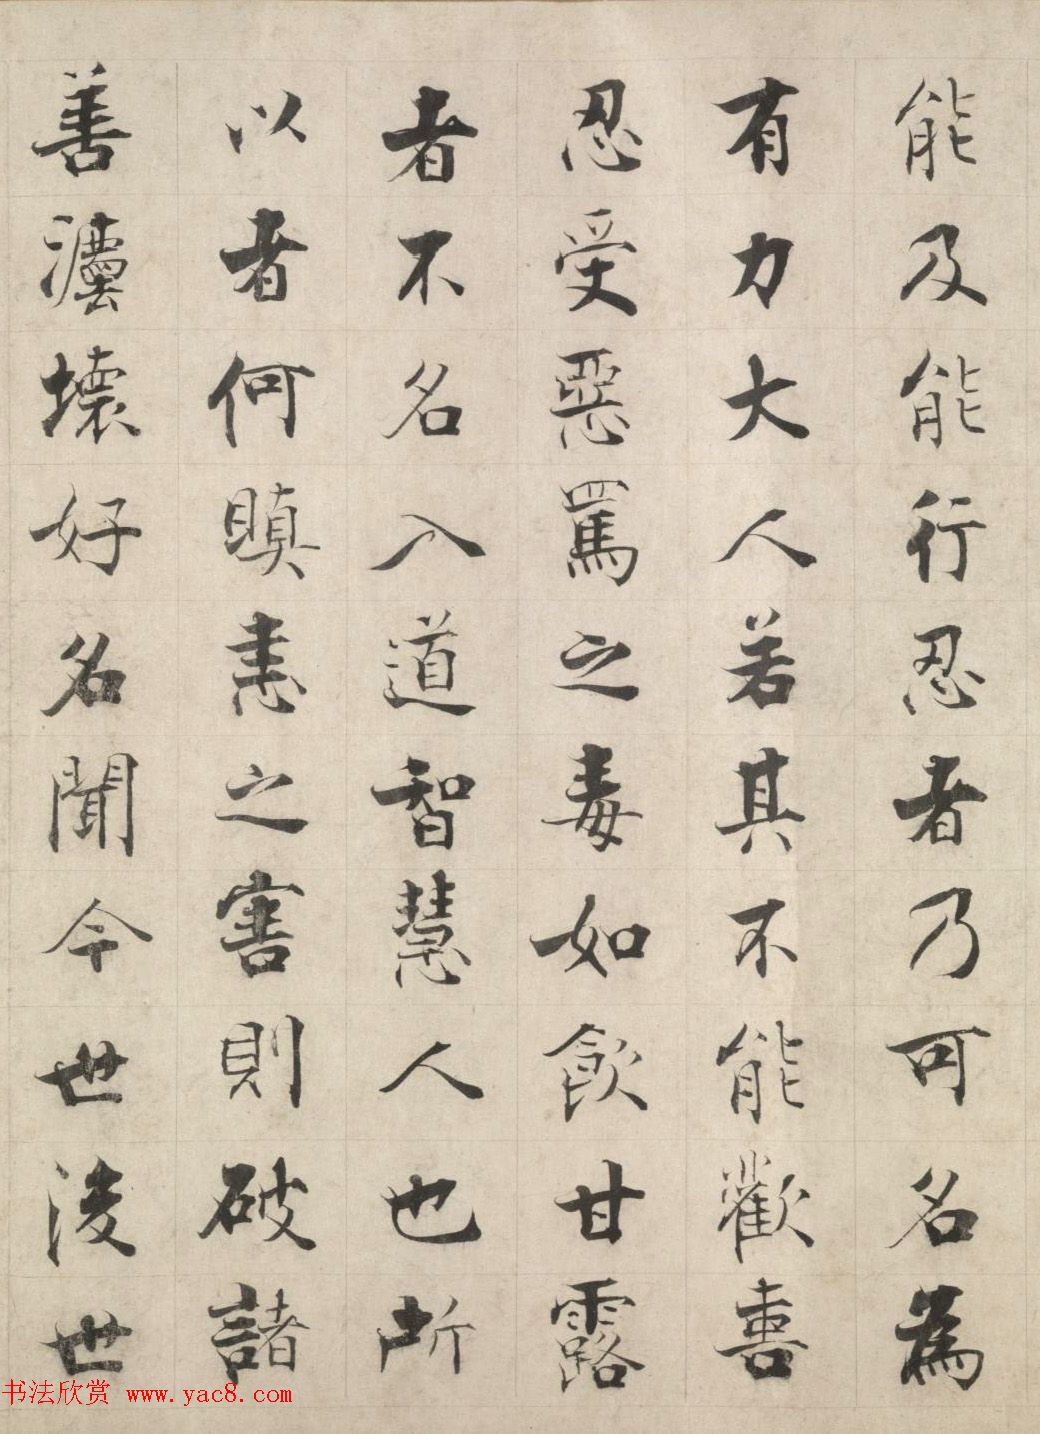 能及能行忍者乃可名為
有力大人若其不能歡喜
忍受惡罵之毒如飲甘露
者不名入道智慧人也所
以者何瞋恚之害則破諸
善灋壞好名聞今世後世
书法欣赏 www.yac8.com